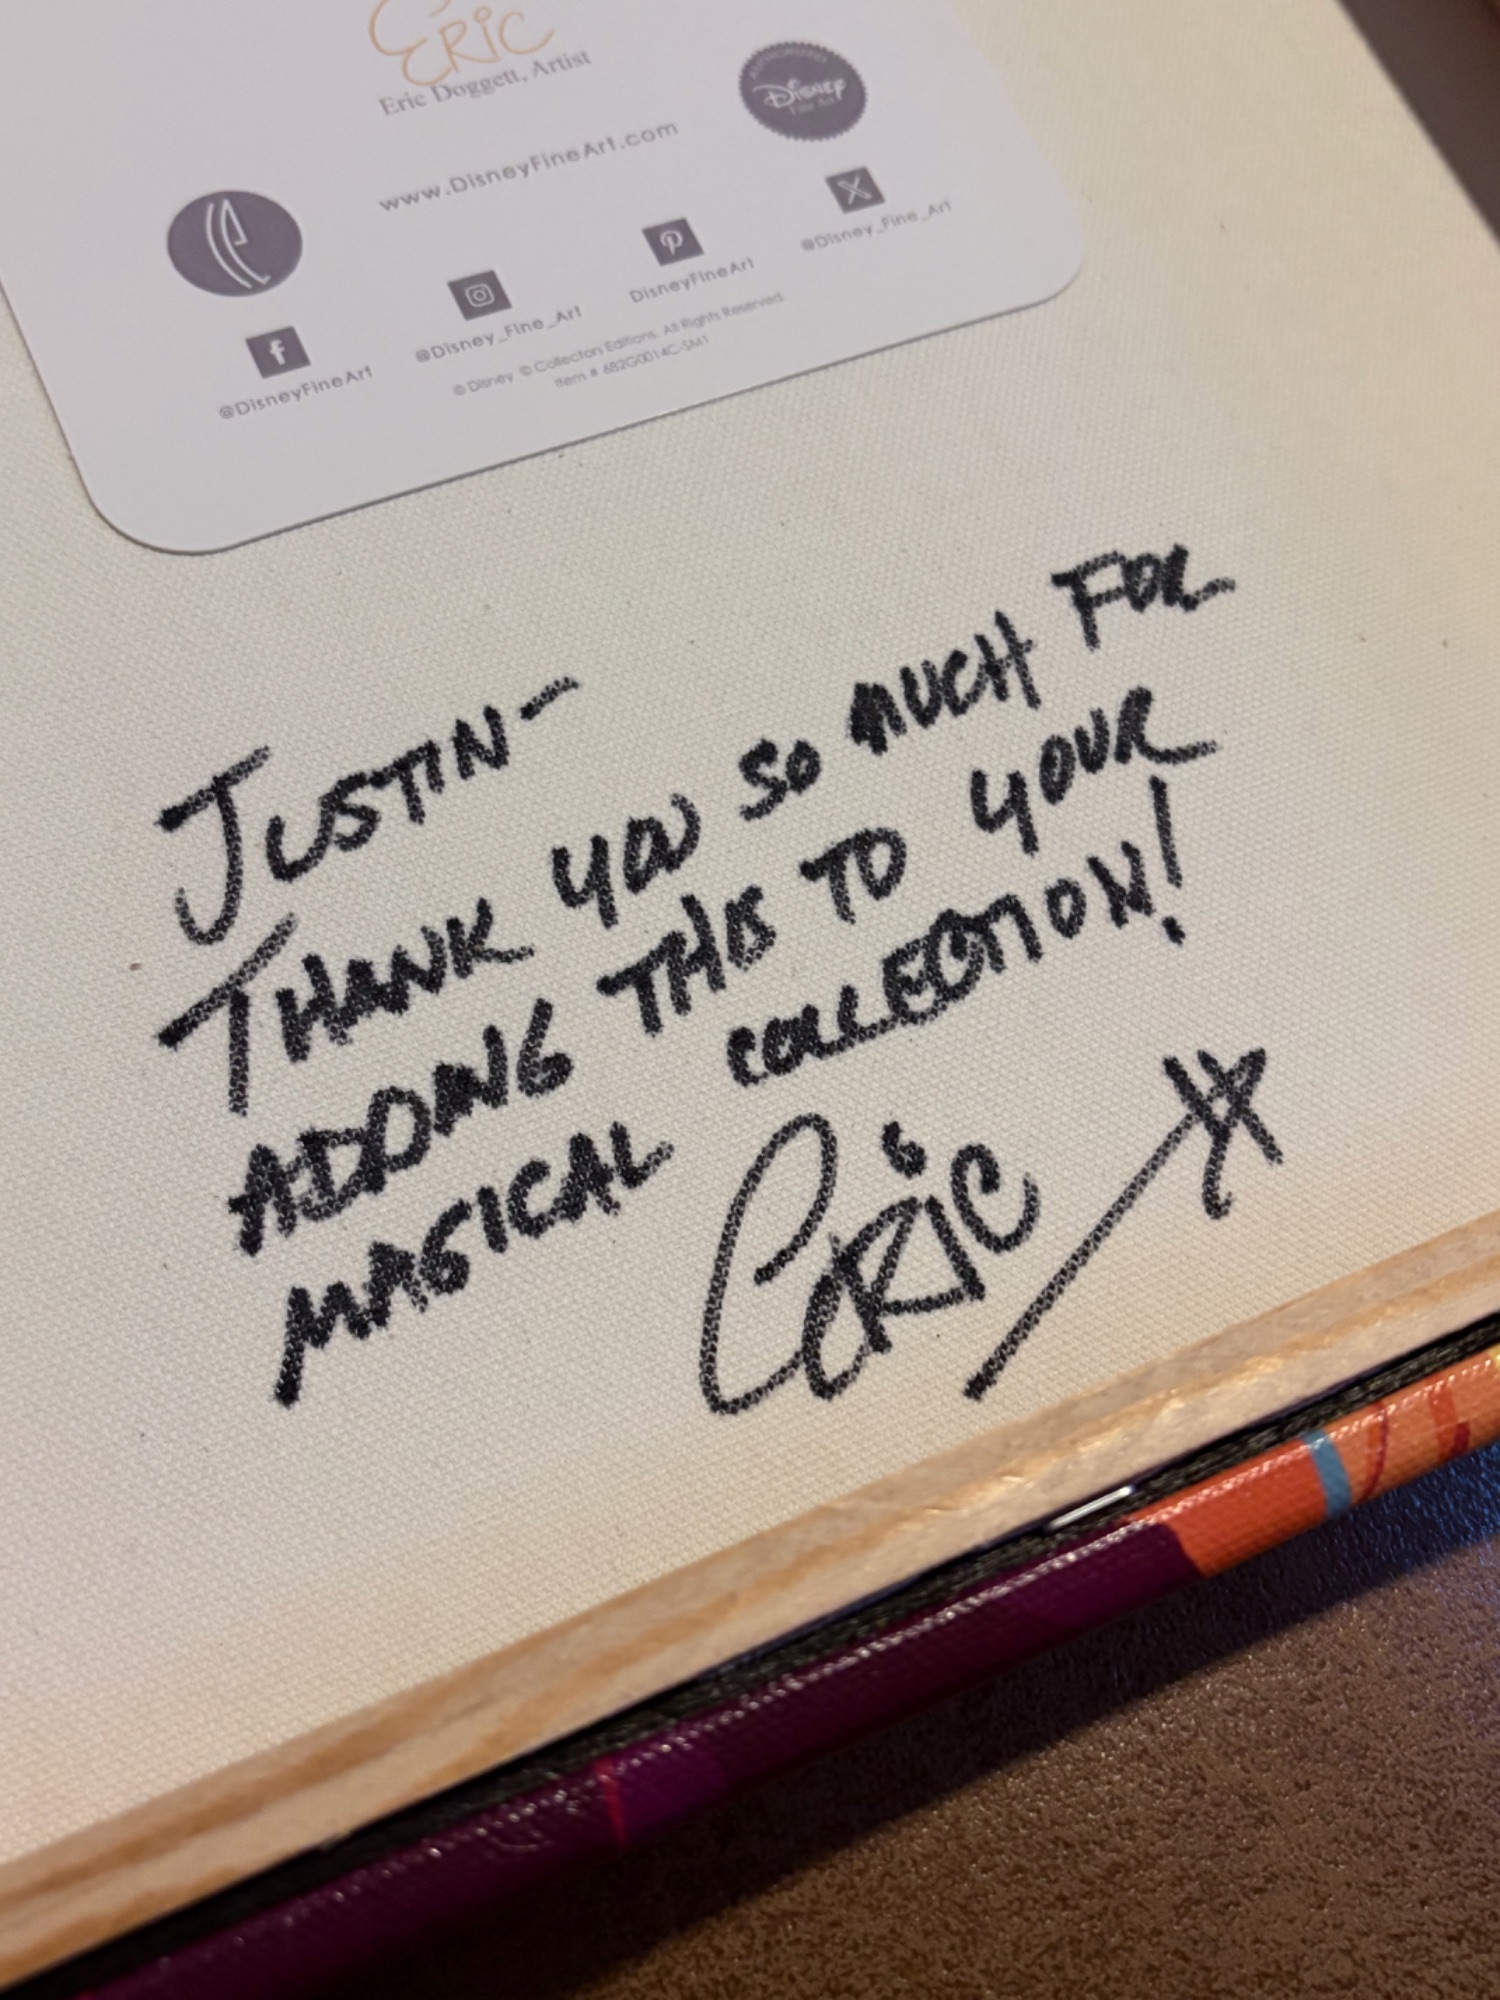 ERIC
Eric Doggett, Artist
AUTHORIZED
Disney
Fine Art
www.DisneyFineArt.com
@Disney_Fine_Art
DisneyFineArt
@Disney_Fine_Art
@DisneyFineArt
© Disney © Collectors Editions. All Rights Reserved.
Item # 682G0014C-SM1
JUSTIN-
THANK YOU SO MUCH FOR
ADDING THIS TO YOUR
MAGICAL COLLECTION!
ERIC